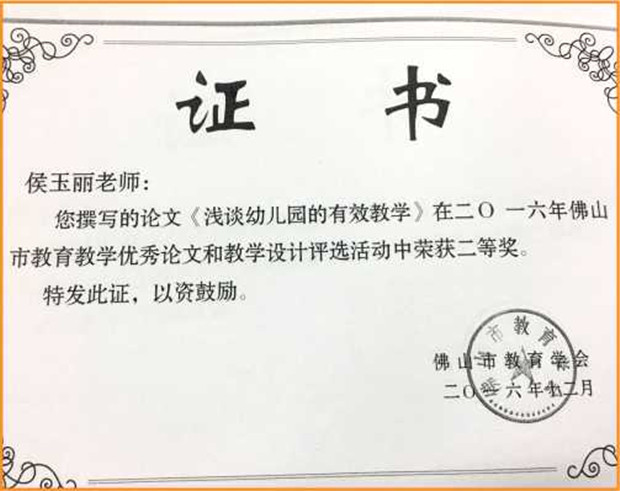 证书
侯玉丽老师:
您撰写的论文《浅谈幼儿园的有效教学》在二〇一六年佛山
市教育教学优秀论文和教学设计评选活动中荣获二等奖。
特发此证，以资鼓励。
佛山市教育学会
二〇一六年十二月